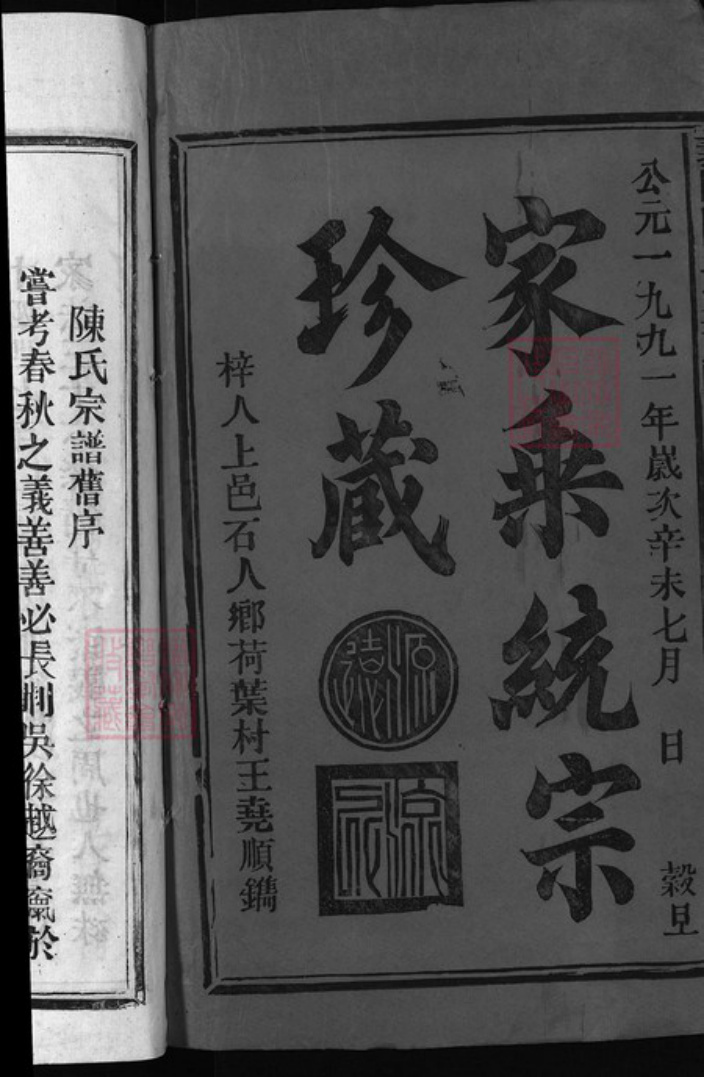 公元一九九一年歲次辛未七月 日 穀旦
家乘統宗
珍藏
源遠
梓人上邑石人鄉荷葉村王堯順鐫
陳氏宗譜舊序
嘗考春秋之義善善必長削吳徐越裔竄於